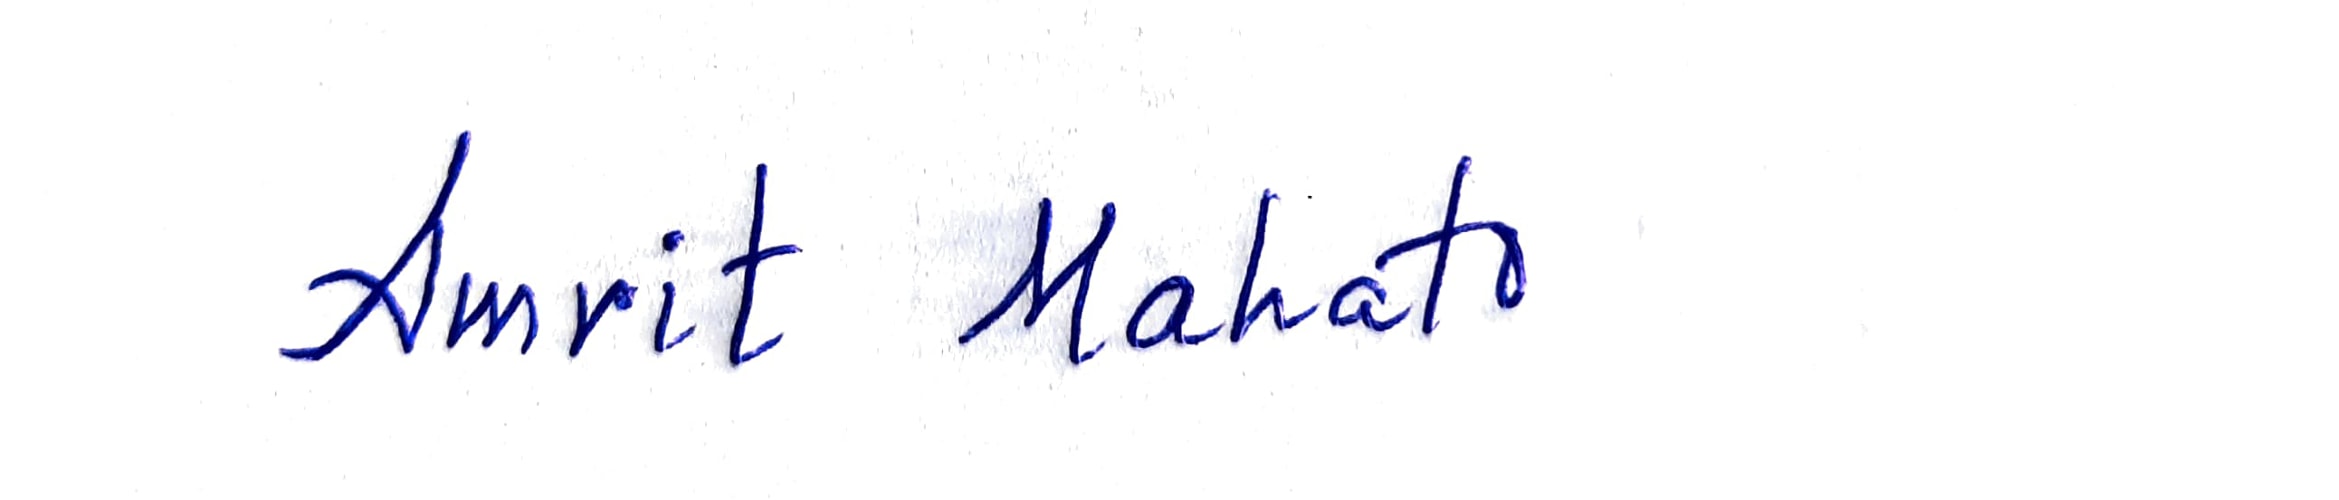 Amrit Mahato